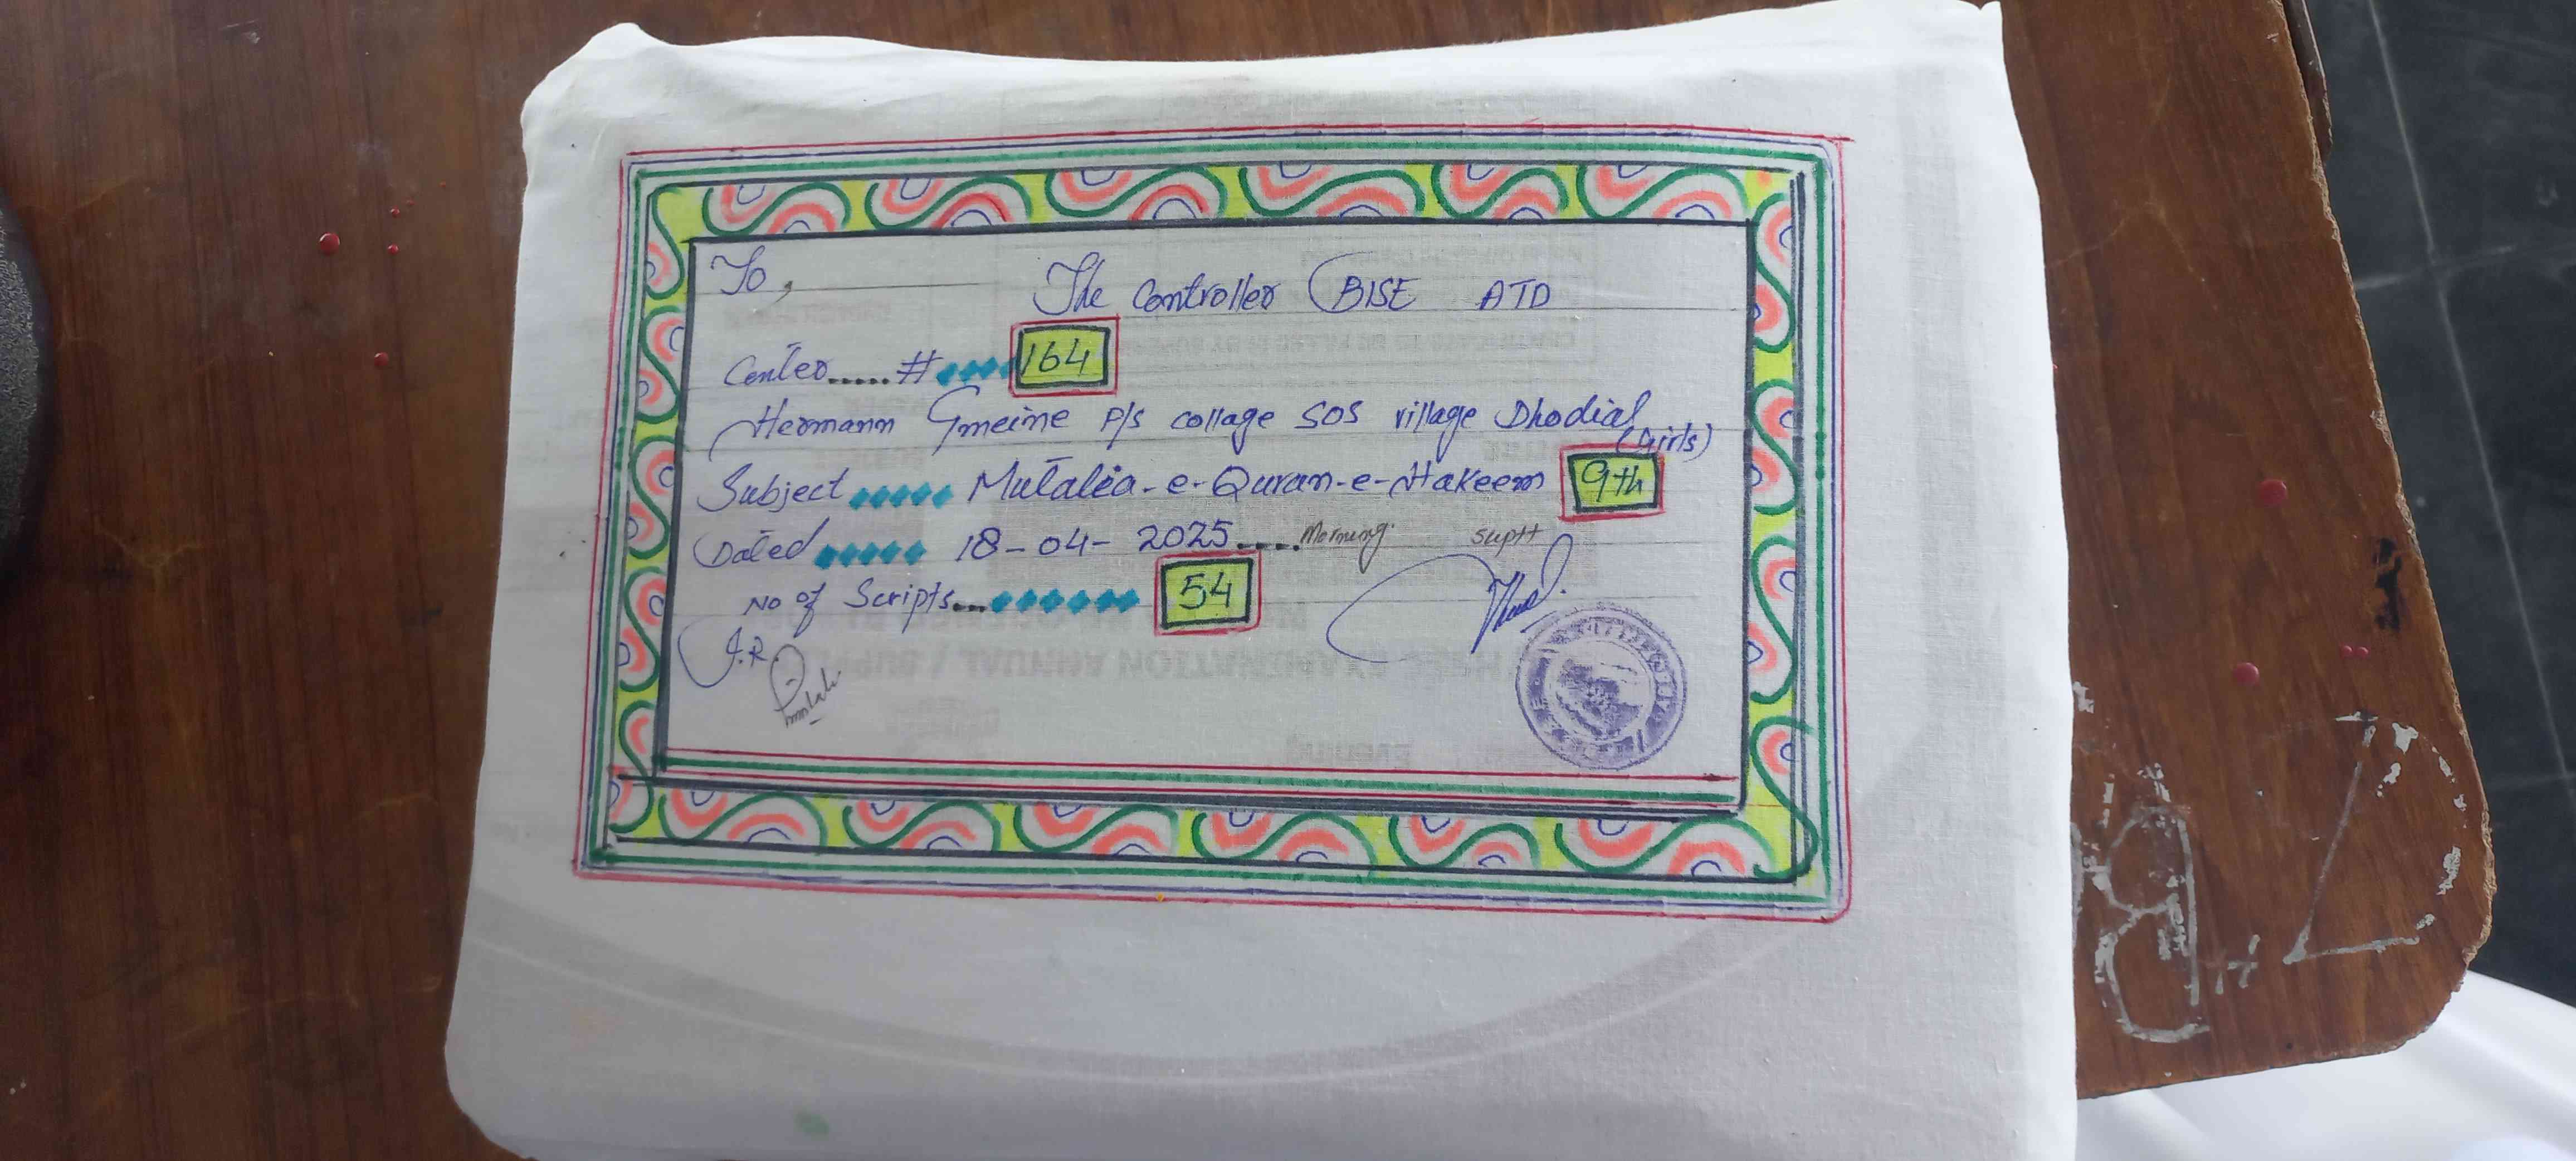 To,
The Controller BISE ATD
Center..... # 164
Hermann Gmeine P/S collage SOS village Dhodial
(Girls)
Subject Mutalea-e-Quran-e-Hakeem 9th
Dated 18-04-2025.....Morning. Suptt
No of Scripts... 54
J.R